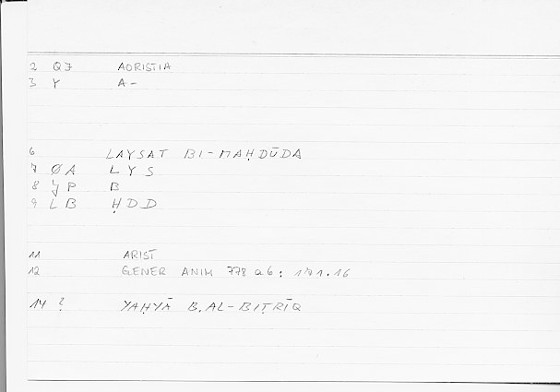 2 QJ AORISTIA
3 Y A-
6 LAYSAT BI-MAḤDŪDA
7 ØA LYS
8 YP B
9 LB ḤDD
11 ARIST
12 GENER ANIM 778 a6:
14 ? YAḤYĀ B. AL-BIṬRĪQ